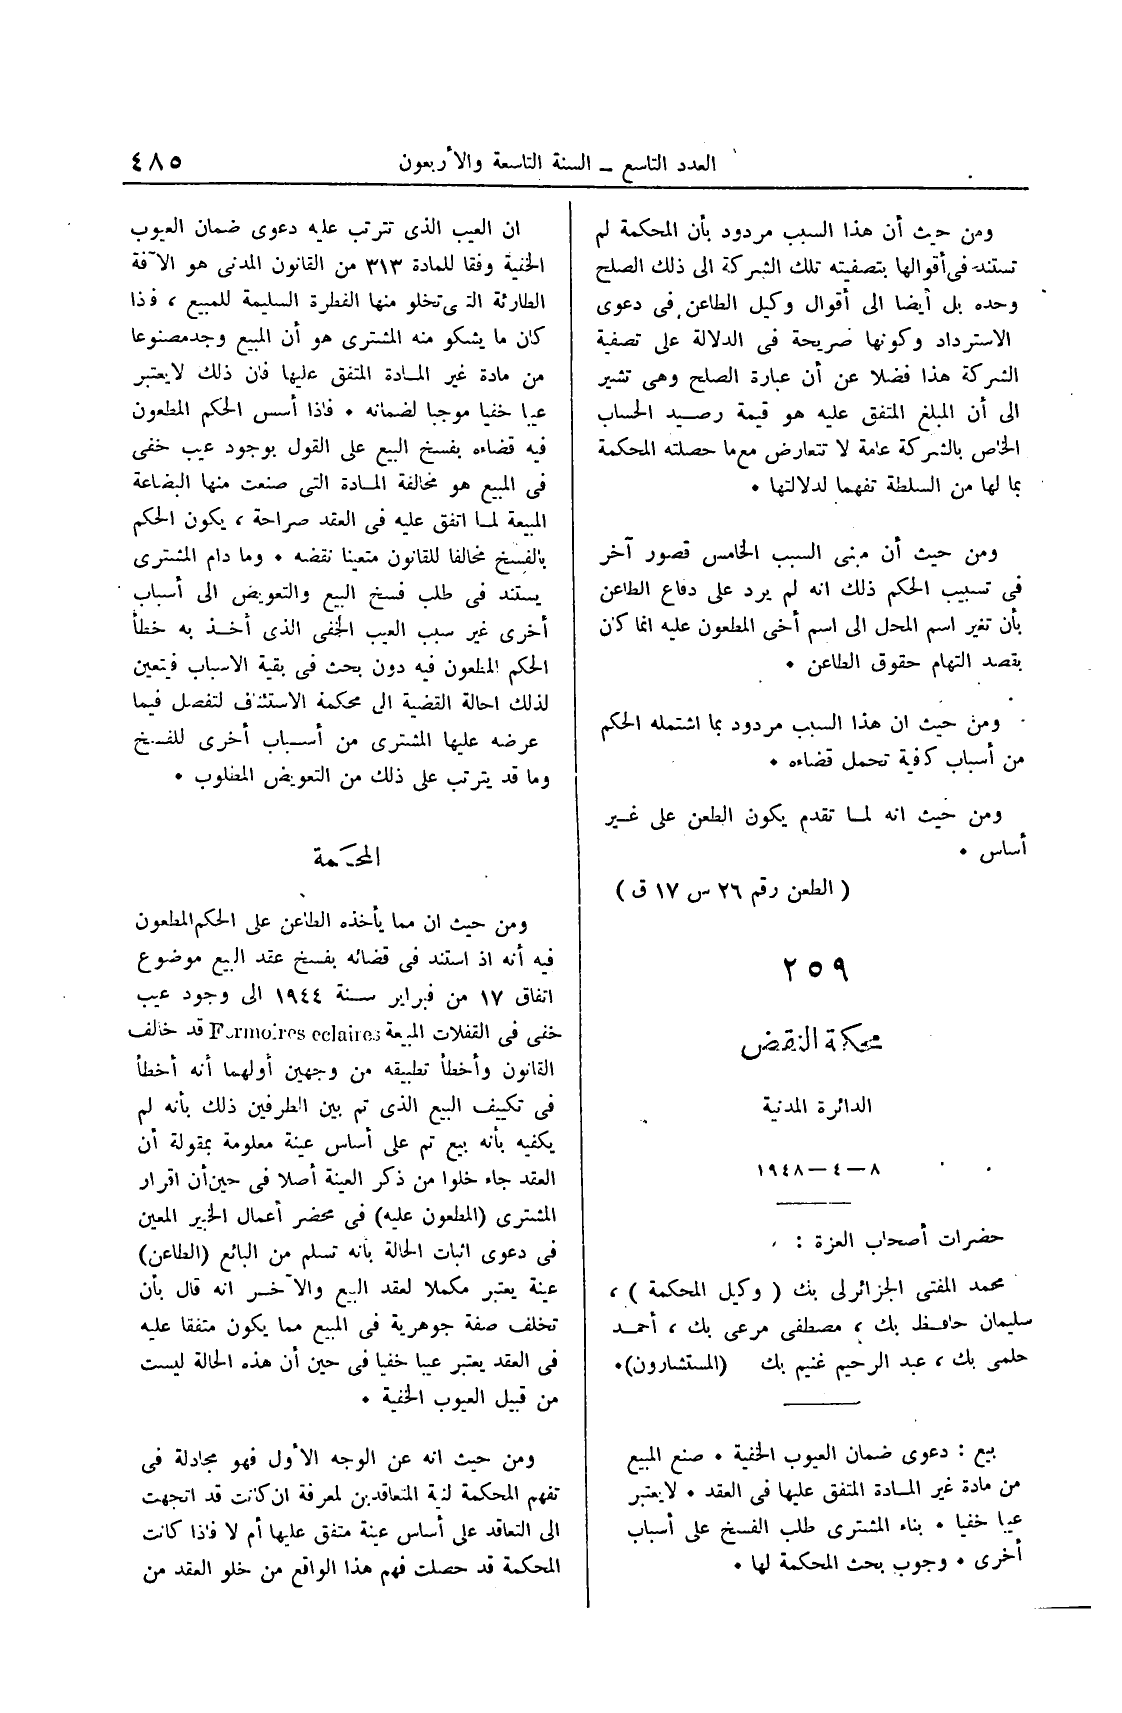 العدد التاسع ــ السنة التاسعة والأربعون
٤٨٥
ومن حيث أن هذا السبب مردود بأن المحكمة لم
تستند فى أقوالها بتصفيته تلك الشركة الى ذلك الصلح
وحده بل أيضا الى أقوال وكيل الطاعن فى دعوى
الاسترداد وكونها صريحة فى الدلالة على تصفية
الشركة هذا فضلا عن أن عبارة الصلح وهى تشير
الى أن المبلغ المتفق عليه هو قيمة رصيد الحساب
الخاص بالشركة عامة لا تتعارض مع ما حصلته المحكمة
بما لها من السلطة تفهما لدلالتها ٠
ومن حيث أن مبنى السبب الخامس قصور آخر
فى تسبيب الحكم ذلك انه لم يرد على دفاع الطاعن
بأن تغير اسم المحل الى اسم أخى المطعون عليه انما كان
بقصد التهام حقوق الطاعن ٠
ومن حيث ان هذا السبب مردود بما اشتمله الحكم
من أسباب كفية تحمل قضاءه ٠
ومن حيث انه لمــا تقدم يكون الطعن على غــير
أساس ٠
( الطعن رقم ٢٦ س ١٧ ق )
٢٥٩
محكمة النقض
الدائرة المدنية
٨ــ٤ــ١٩٤٨
حضرات أصحاب العزة :
محمد المفتى الجزائرلى بك ( وكيل المحكمة ) ،
سليمان حافــظ بك ، مصطفى مرعى بك ، أحمــد
حلمى بك ، عبد الرحيم غنيم بك (المستشارون)٠
بيع : دعوى ضمان العيوب الخفية ٠ صنع المبيع
من مادة غير المــادة المتفق عليها فى العقد ٠ لا يعتبر
عيبا خفيا ٠ بناء المشترى طلب الفسخ على أسباب
أخرى ٠ وجوب بحث المحكمة لها ٠
ان العيب الذى تترتب عليه دعوى ضمان العيوب
الخفية وفقا للمادة ٣١٣ من القانون المدنى هو الآفة
الطارئة التى تخلو منها الفطرة السليمة للمبيع ، فذا
كان ما يشكو منه المشترى هو أن المبيع وجد مصنوعا
من مادة غير المــادة المتفق عليها فان ذلك لا يعتبر
عيبا خفيا موجبا لضمانه ٠ فاذا أسس الحكم المطعون
فيه قضاءه بفسخ البيع على القول بوجود عيب خفى
فى المبيع هو مخالفة المــادة التى صنعت منها البضاعة
المبيعة لمــا اتفق عليه فى العقد صراحة ، يكون الحكم
بالفسخ مخالفا للقانون متعينا نقضه ٠ وما دام المشترى
يستند فى طلب فسخ البيع والتعويض الى أسباب
أخرى غير سبب العيب الخفى الذى أخــذ به خطأ
الحكم المطعون فيه دون بحث فى بقية الاسباب فيتعين
لذلك احالة القضية الى محكمة الاستئناف لتفصل فيما
عرضه عليها المشترى من أســباب أخرى للفــخ
وما قد يترتب على ذلك من التعويض المطلوب ٠
المحكمة
ومن حيث ان مما يأخذه الطاعن على الحكم المطعون
فيه أنه اذ استند فى قضائه بفسخ عقد البيع موضوع
اتفاق ١٧ من فبراير ســنة ١٩٤٤ الى وجود عيب
خفى فى القفلات المبيعة Fermoires eclaires قد خالف
القانون وأخطأ تطبيقه من وجهين أولهما أنه أخطأ
فى تكييف البيع الذى تم بين الطرفين ذلك بأنه لم
يكفيه بأنه بيع تم على أساس عينة معلومة بمقولة أن
العقد جاء خلوا من ذكر العينة أصلا فى حين أن اقرار
المشترى (المطعون عليه) فى محضر أعمال الخبير المعين
فى دعوى اثبات الحالة بأنه تسلم من البائع (الطاعن)
عينة يعتبر مكملا لعقد البيع والآخــر انه قال بأن
تخلف صفة جوهرية فى المبيع مما يكون متفقا عليه
فى العقد يعتبر عيبا خفيا فى حين أن هذه الحالة ليست
من قبيل العيوب الخفية ٠
ومن حيث انه عن الوجه الأول فهو مجادلة فى
تفهم المحكمة لنية المتعاقدين لمعرفة ان كانت قد اتجهت
الى التعاقد على أساس عينة متفق عليها أم لا فاذا كانت
المحكمة قد حصلت فهم هذا الواقع من خلو العقد من